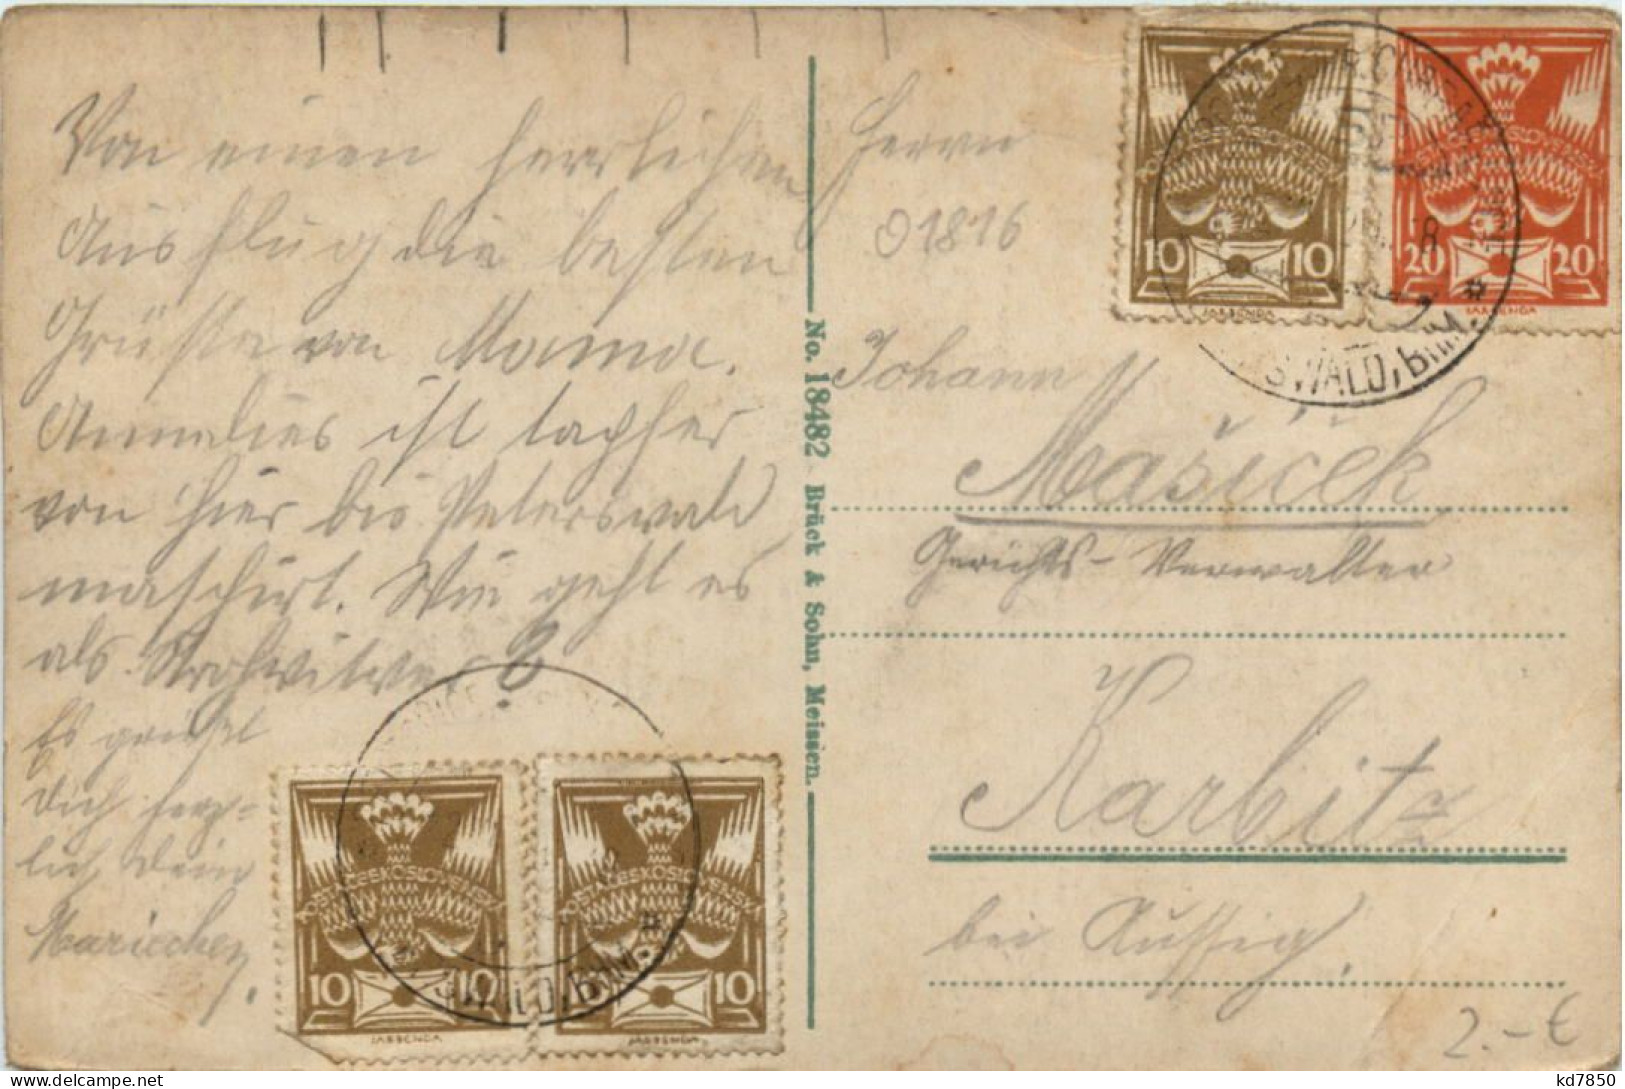 Von einem herrlichen
Ausflug die besten
Grüsse von Mama.
Annelies ist tapfer
von hier bis Peterswald
maschirt. Wie geht es
als Strohwitwer?
Es grüsst
Dich herz=
lich Dein
Mariechen.
No. 18482 Brück & Sohn, Meissen.
Herrn
01816
Johann
Mašíček
Gerichts-Verwalter
Karbitz
bei Aussig
2.-€
POSTA ČESKOSLOVENSKÁ
10 10
POSTA ČESKOSLOVENSKÁ
20 20
SWALD, BÖHM.
POSTA ČESKOSLOVENSKÁ
10 10
POSTA ČESKOSLOVENSKÁ
10 10
SWALD, BÖHM.
kd7850